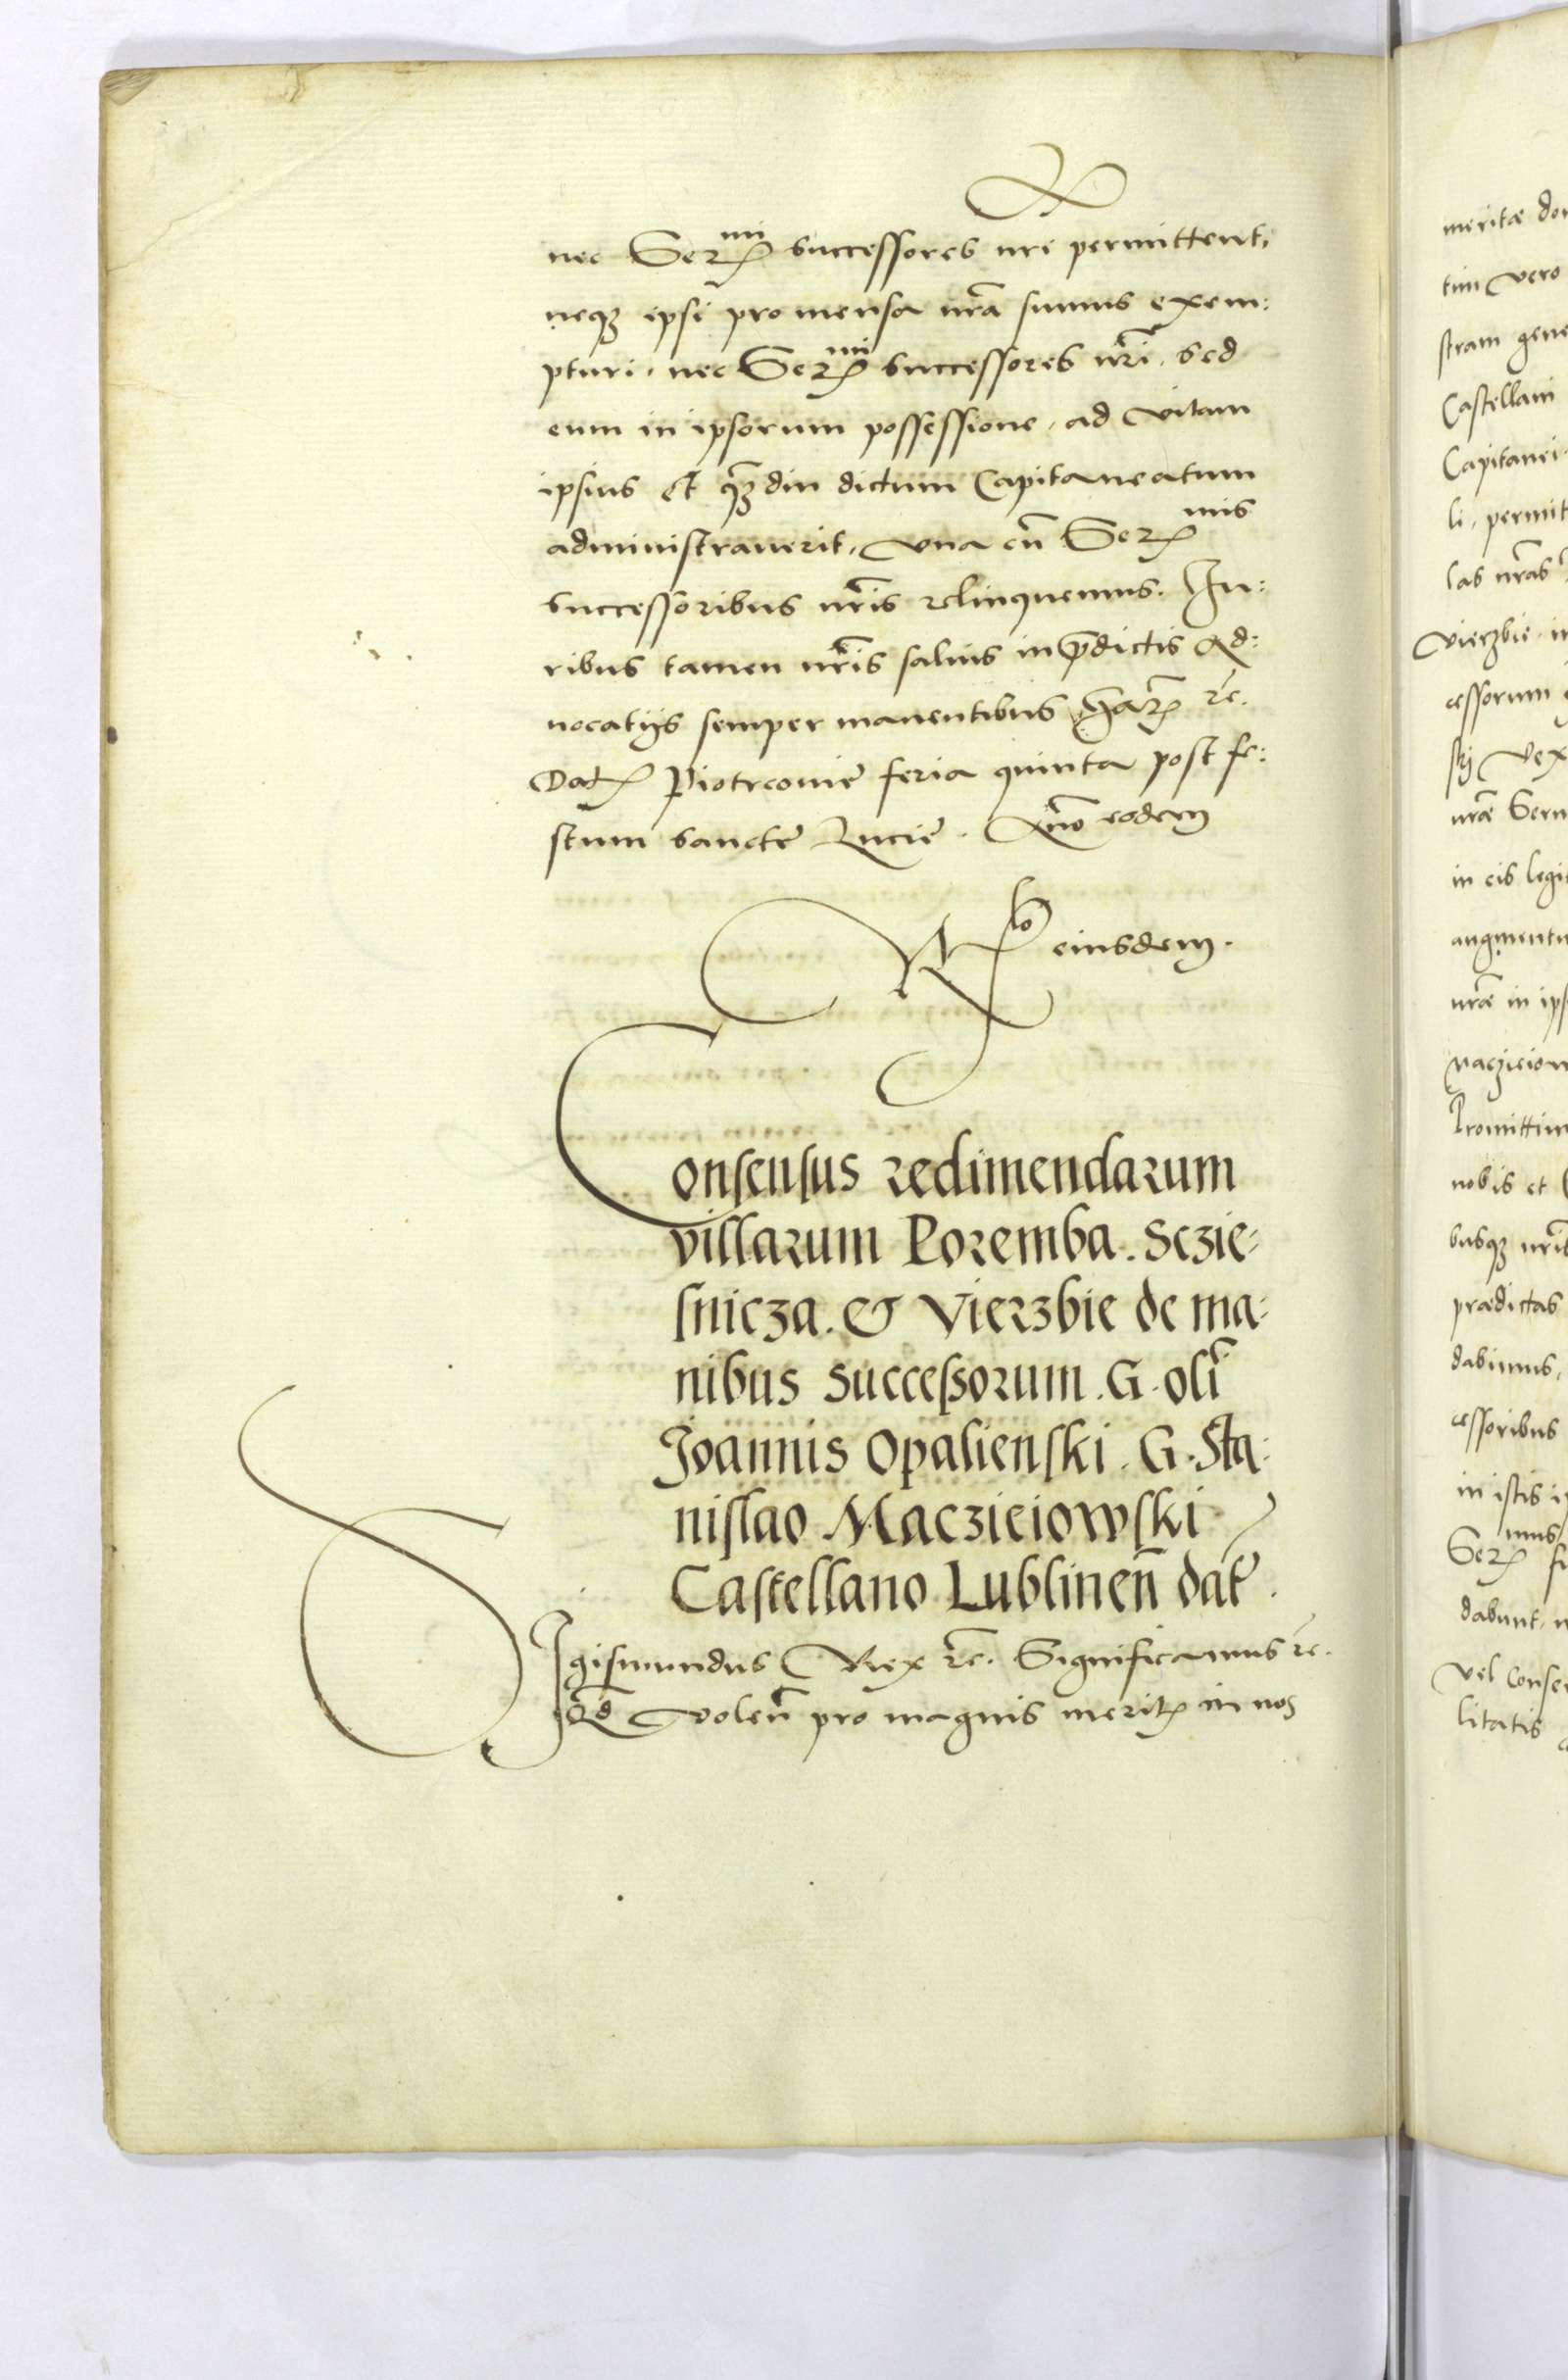 nec Ser^mi successores nri permittent,
neq3 ipsi pro mensa nrã sumus exem:
pturi, nec Ser^mi successores nr̃i, sed
eum in ipsorum possessione, ad vitam
ipsius et q̃3diu dictum Capitaneatum
administraverit, vna cũ Ser^mis
successoribus nr̃is relinquemus. Iu:
ribus tamen nr̃is salvis in p̃dictis Ad:
uocatijs semper manentibus, rc̃.
Dat Piotrcovie feria quinta post fe:
stum sancte Lucie. Anño eodem
eiusdem.
Consensus redimendarum
villarum Poremba. Sczie:
snicza. & Vierzbie de ma:
nibus successorum. G. oli͂
Joannis Opalienski. G. Sta:
nislao Maczieiowski
Castellano Lublineñ dat̃.
Sigismundus Rex rc̃. Significamus rc̃.
Qd̃ volen̄ pro magnis merit in nos
meritæ do
tim vero
stram gene
Castellani
Capitanei
li, permit
las nr̃as
Vierzbie in
cessorum
stri Vex
nræ Seren
in eis legi
augmentu
nræ in ips
Maczieiow
Promittim
nobis et
busq3 nr̃is
prædictas
dabimus,
cessoribus
in istis i
Ser^mus
dabunt, n
vel conse
litatis